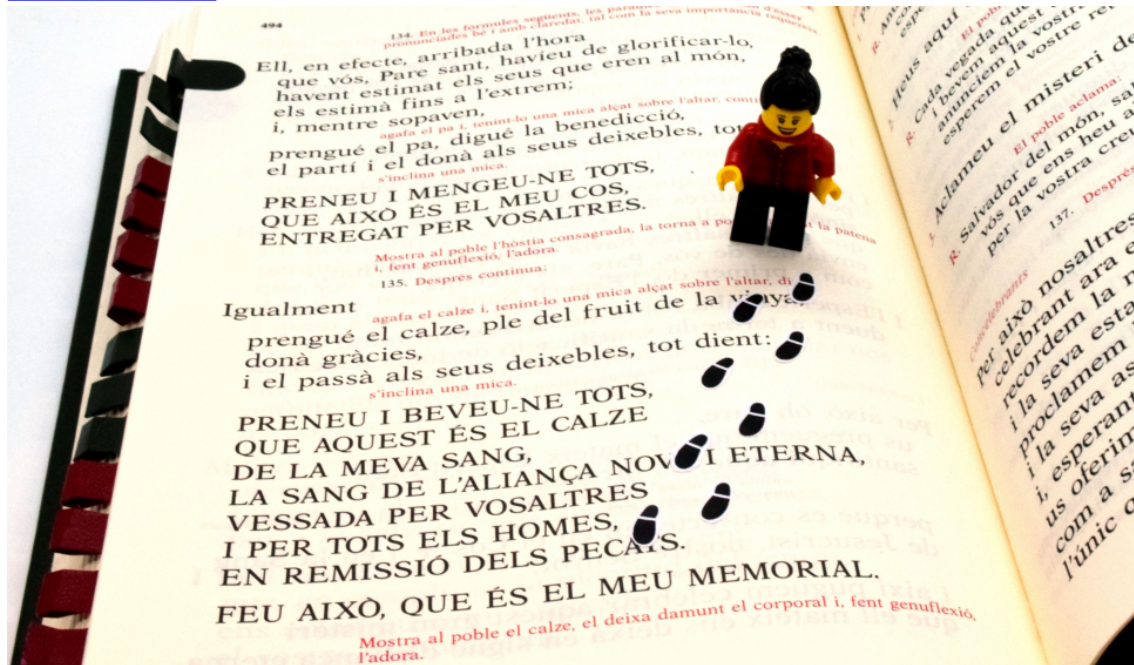 494
134. En les fórmules següents, les paraules d'esser
pronunciades bé i amb claredat, tal com la seva importància requereix.
Ell, en efecte, arribada l'hora
que vós, Pare sant, havíeu de glorificar-lo,
havent estimat els seus que eren al món,
els estimà fins a l'extrem;
i, mentre sopaven,
agafa el pa i, tenint-lo una mica alçat sobre l'altar,
prengué el pa, digué la benedicció,
el partí i el donà als seus deixebles, tot
s'inclina una mica.
PRENEU I MENGEU-NE TOTS,
QUE AIXÒ ÉS EL MEU COS,
ENTREGAT PER VOSALTRES.
Mostra al poble l'hòstia consagrada, la torna a la patena
i, fent genuflexió, l'adora.
135. Després continua:
Igualment
agafa el calze i, tenint-lo una mica alçat sobre l'altar, di
prengué el calze, ple del fruit de la vinya,
donà gràcies,
i el passà als seus deixebles, tot dient:
s'inclina una mica.
PRENEU I BEVEU-NE TOTS,
QUE AQUEST ÉS EL CALZE
DE LA MEVA SANG,
LA SANG DE L'ALIANÇA NOVA I ETERNA,
VESSADA PER VOSALTRES
I PER TOTS ELS HOMES,
EN REMISSIÓ DELS PECATS.
FEU AIXÒ, QUE ÉS EL MEU MEMORIAL.
Mostra al poble el calze, el deixa damunt el corporal i, fent genuflexió,
l'adora.
Heus aquí
El poble
R. Cada vegada que
i bevem aquest
anunciem la vostra
esperem el vostre
Aclameu el misteri de
El poble aclama:
R. Salvador del món,
vós que ens heu
per la vostra creu
137. Després
Concelebrants
Per això nosaltres
celebrant ara
recordem la
i la seva
proclamem
i la seva
i, esperant
us oferim
com a
l'únic